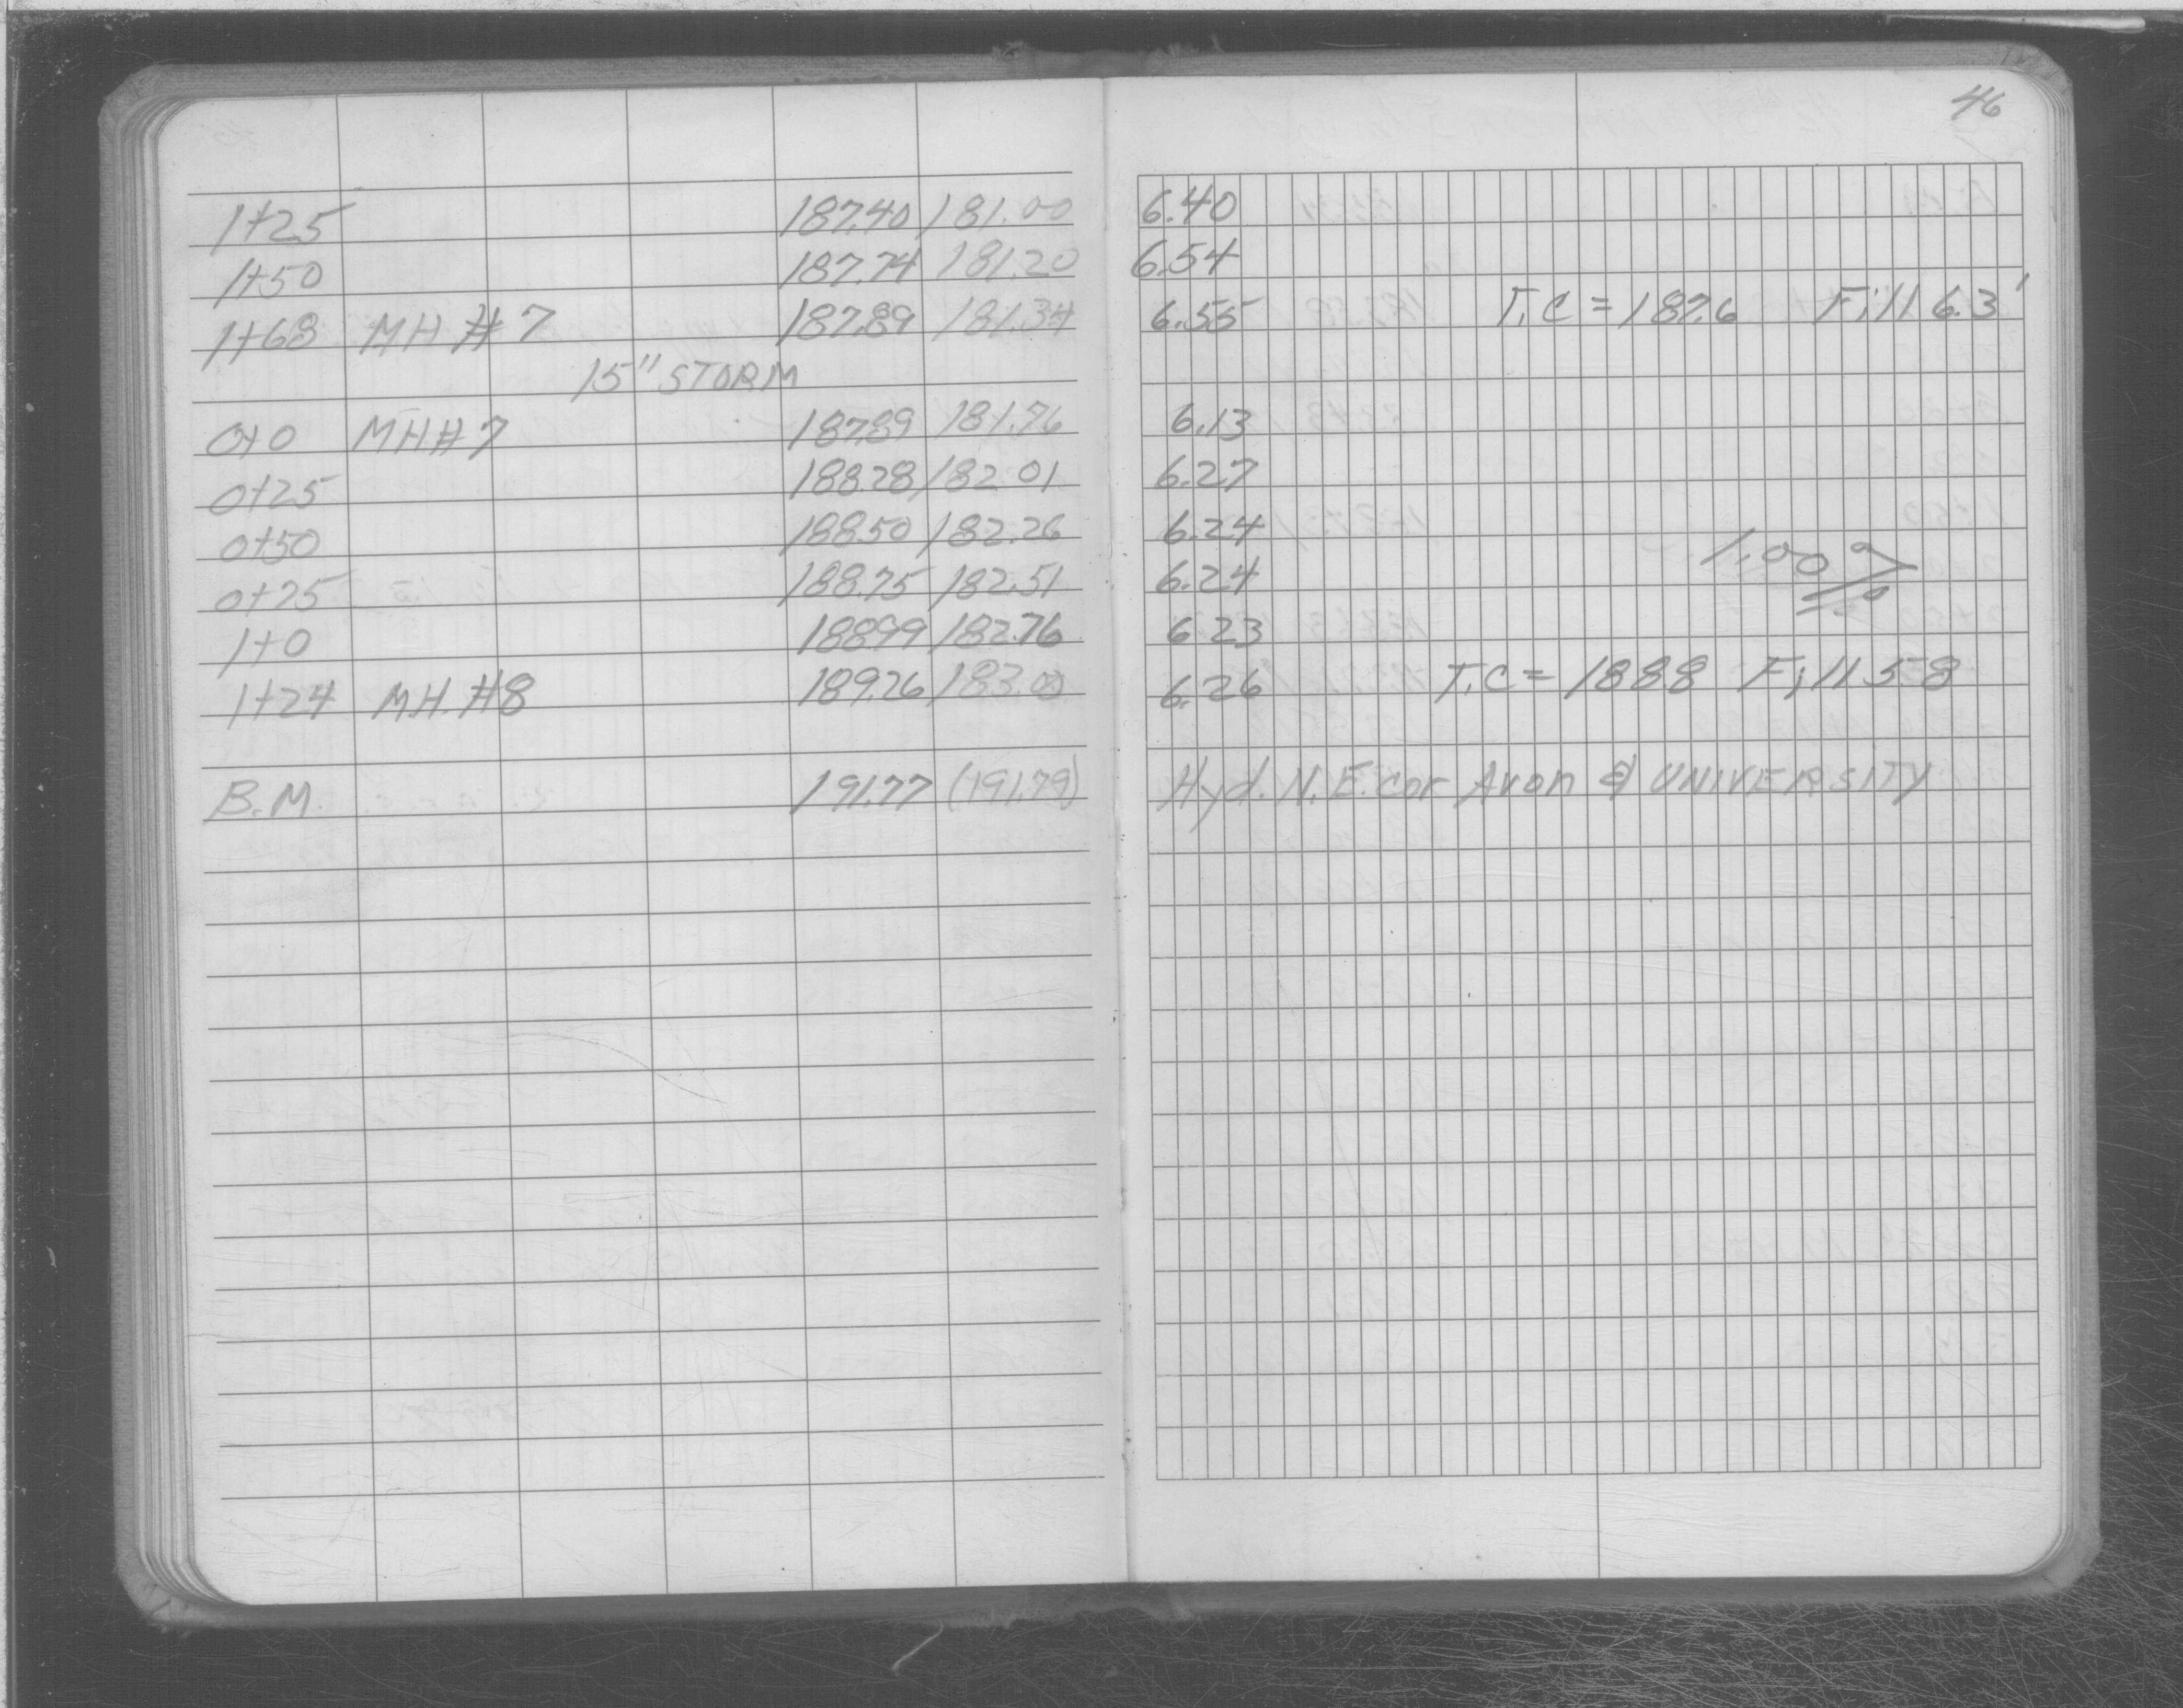 46
1+25 187.40 181.00 6.40
1+50 187.74 181.20 6.54
1+68 MH # 7 187.89 181.34 6.55 T.C = 187.6 Fill 6.3'
15" STORM
0+0 MH # 7 187.89 181.76 6.13
0+25 188.28 182.01 6.27
0+50 188.50 182.26 6.24
1.00%
0+75 188.75 182.51 6.24
1+0 188.99 182.76 6.23
1+24 M.H. #8 189.26 183.00 6.26 T.C = 188.8 Fill 5.8
B.M. 191.77 (191.79) Hyd. N.E. cor Avon & UNIVERSITY